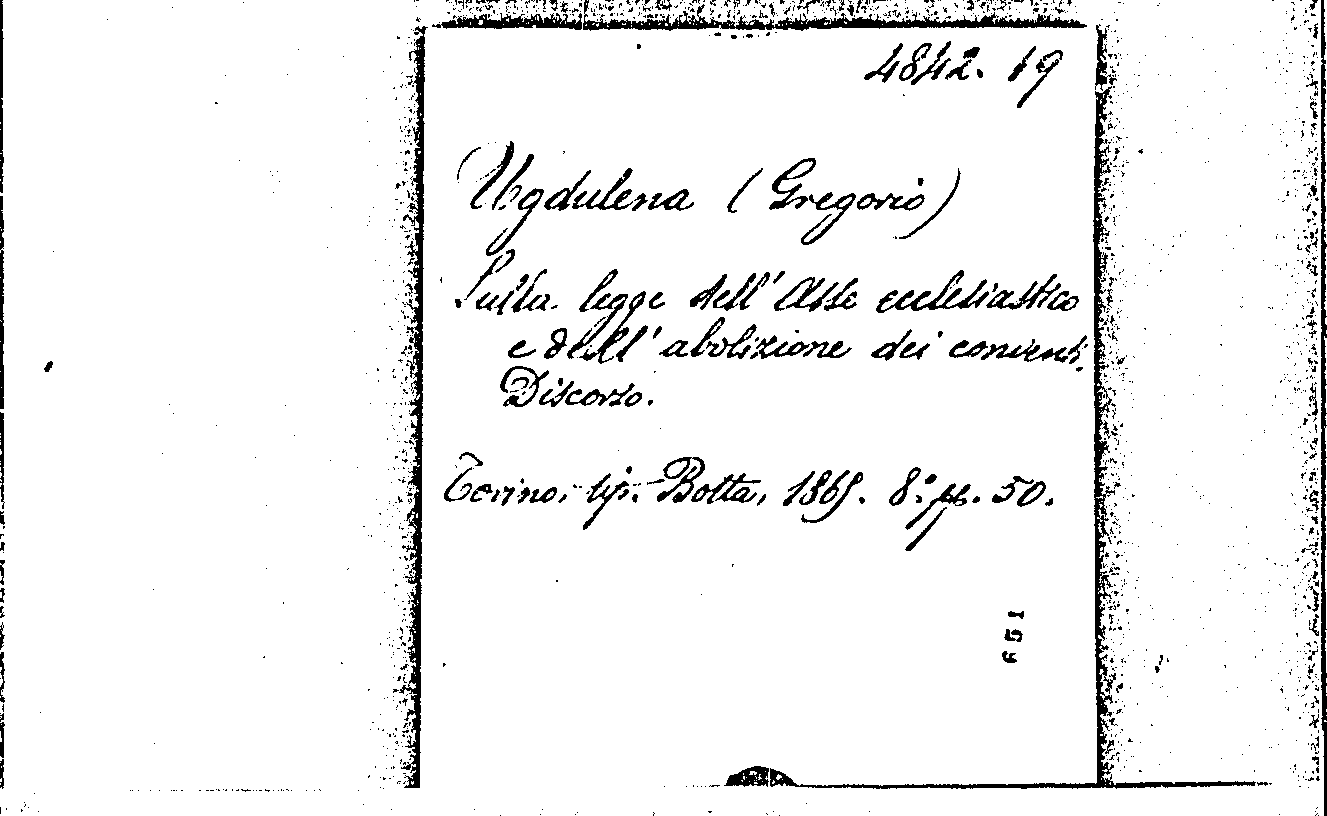 4842. 19
Ugdulena (Gregorio)
Sulla legge dell'Asse ecclesiastico
e dell'abolizione dei conventi.
Discorso.
Torino, tip. Botta, 1865. 8.° pp. 50.
651